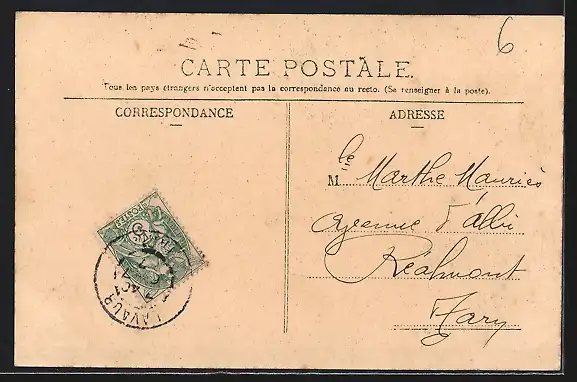 6
CARTE POSTALE.
Tous les pays étrangers n'acceptent pas la correspondance au recto. (Se renseigner à la poste).
CORRESPONDANCE
ADRESSE
Mlle Marthe Mauriès
Avenue d'albi
Réalmont
Tarn
POSTES
LAVAUR